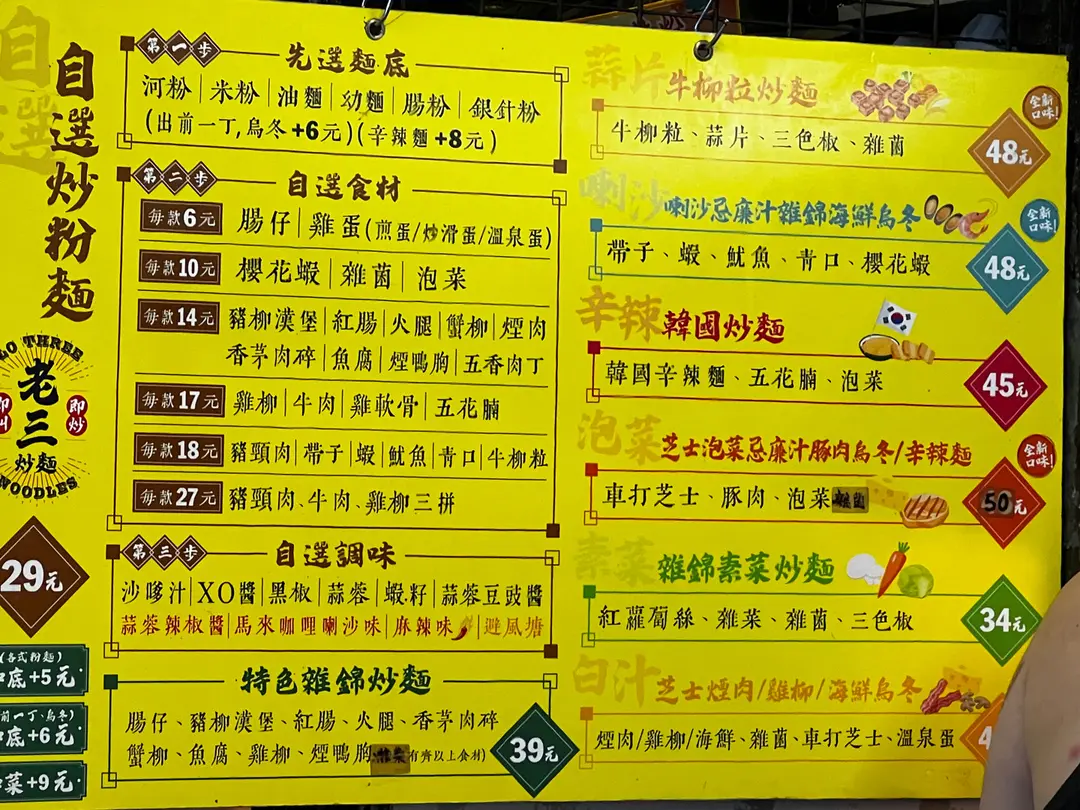 自選炒粉麵
LO THREE
老三
即炒
炒麵
NOODLES
29元
(各式粉麵)
底+5元
前一丁、烏冬)
底+6元
菜+9元
第一步
先選麵底
河粉|米粉|油麵|幼麵|腸粉|銀針粉
(出前一丁,烏冬+6元)(辛辣麵+8元)
第二步
自選食材
每款6元 腸仔|雞蛋(煎蛋/炒滑蛋/溫泉蛋)
每款10元 櫻花蝦|雜菌|泡菜
每款14元 豬柳漢堡|紅腸|火腿|蟹柳|煙肉
香茅肉碎|魚腐|煙鴨胸|五香肉丁
每款17元 雞柳|牛肉|雞軟骨|五花腩
每款18元 豬頸肉|帶子|蝦|魷魚|青口|牛柳粒
每款27元 豬頸肉、牛肉、雞柳三拼
第三步
自選調味
沙嗲汁|XO醬|黑椒|蒜蓉|蝦籽|蒜蓉豆豉醬
蒜蓉辣椒醬|馬來咖哩喇沙味|麻辣味|避風塘
特色雜錦炒麵
腸仔、豬柳漢堡、紅腸、火腿、香茅肉碎
蟹柳、魚腐、雞柳、煙鴨胸
有齊以上食材)
39元
蒜片
牛柳粒炒麵
全新口味!
牛柳粒、蒜片、三色椒、雜菌
48元
喇沙
喇沙忌廉汁雜錦海鮮烏冬
全新口味!
帶子、蝦、魷魚、青口、櫻花蝦
48元
辛辣
韓國炒麵
韓國辛辣麵、五花腩、泡菜
45元
泡菜
芝士泡菜忌廉汁豚肉烏冬/辛辣麵
全新口味!
車打芝士、豚肉、泡菜
50元
素菜
雜錦素菜炒麵
紅蘿蔔絲、雜菜、雜菌、三色椒
34元
白汁
芝士煙肉/雞柳/海鮮烏冬
煙肉/雞柳/海鮮、雜菌、車打芝士、溫泉蛋